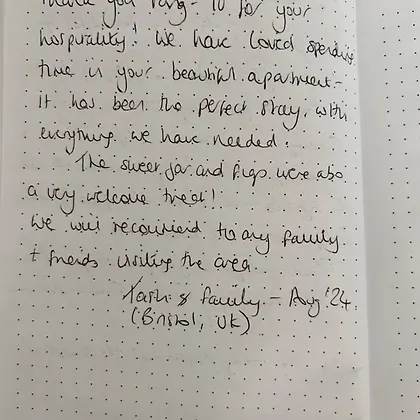 thank you very - so for your
hospitality! We have loved spending
time in your beautiful apartment -
it has been the perfect stay, with
everything we have needed.
The sweet jar and were also
a very welcome treat!
We will recommend to any family
+ friends visiting the area.
& family - Aug '24
(Bristol, UK)